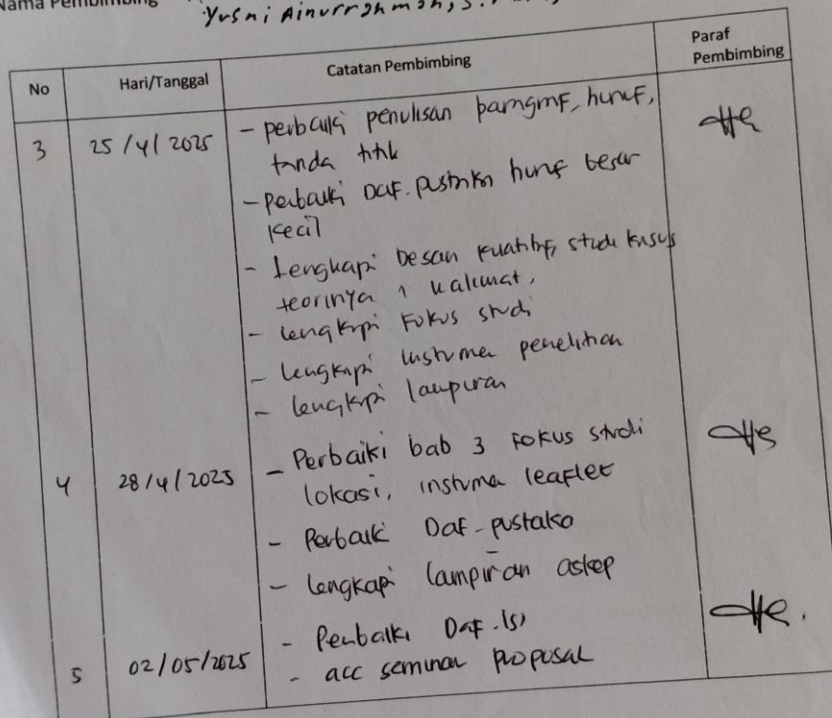 Nama Pembimbing
Yusni Ainurrahman, S.
No
Hari/Tanggal
Catatan Pembimbing
Paraf
Pembimbing
3
25/4/2025
- perbaiki penulisan paragraf, huruf,
tanda titik
- perbaiki Daf. pustaka huruf besar
kecil
- Lengkapi Desan kualitif, studi kasus
teorinya 1 kalimat,
- lengkapi Fokus studi
- lengkapi instrumen penelitian
- lengkapi lampiran
4
28/4/2025
- Perbaiki bab 3 Fokus studi
lokasi, instrumen leaflet
- Perbaiki Daf-pustaka
- lengkapi lampiran askep
5
02/05/2025
- Perbaiki Daf.isi
- acc seminar proposal